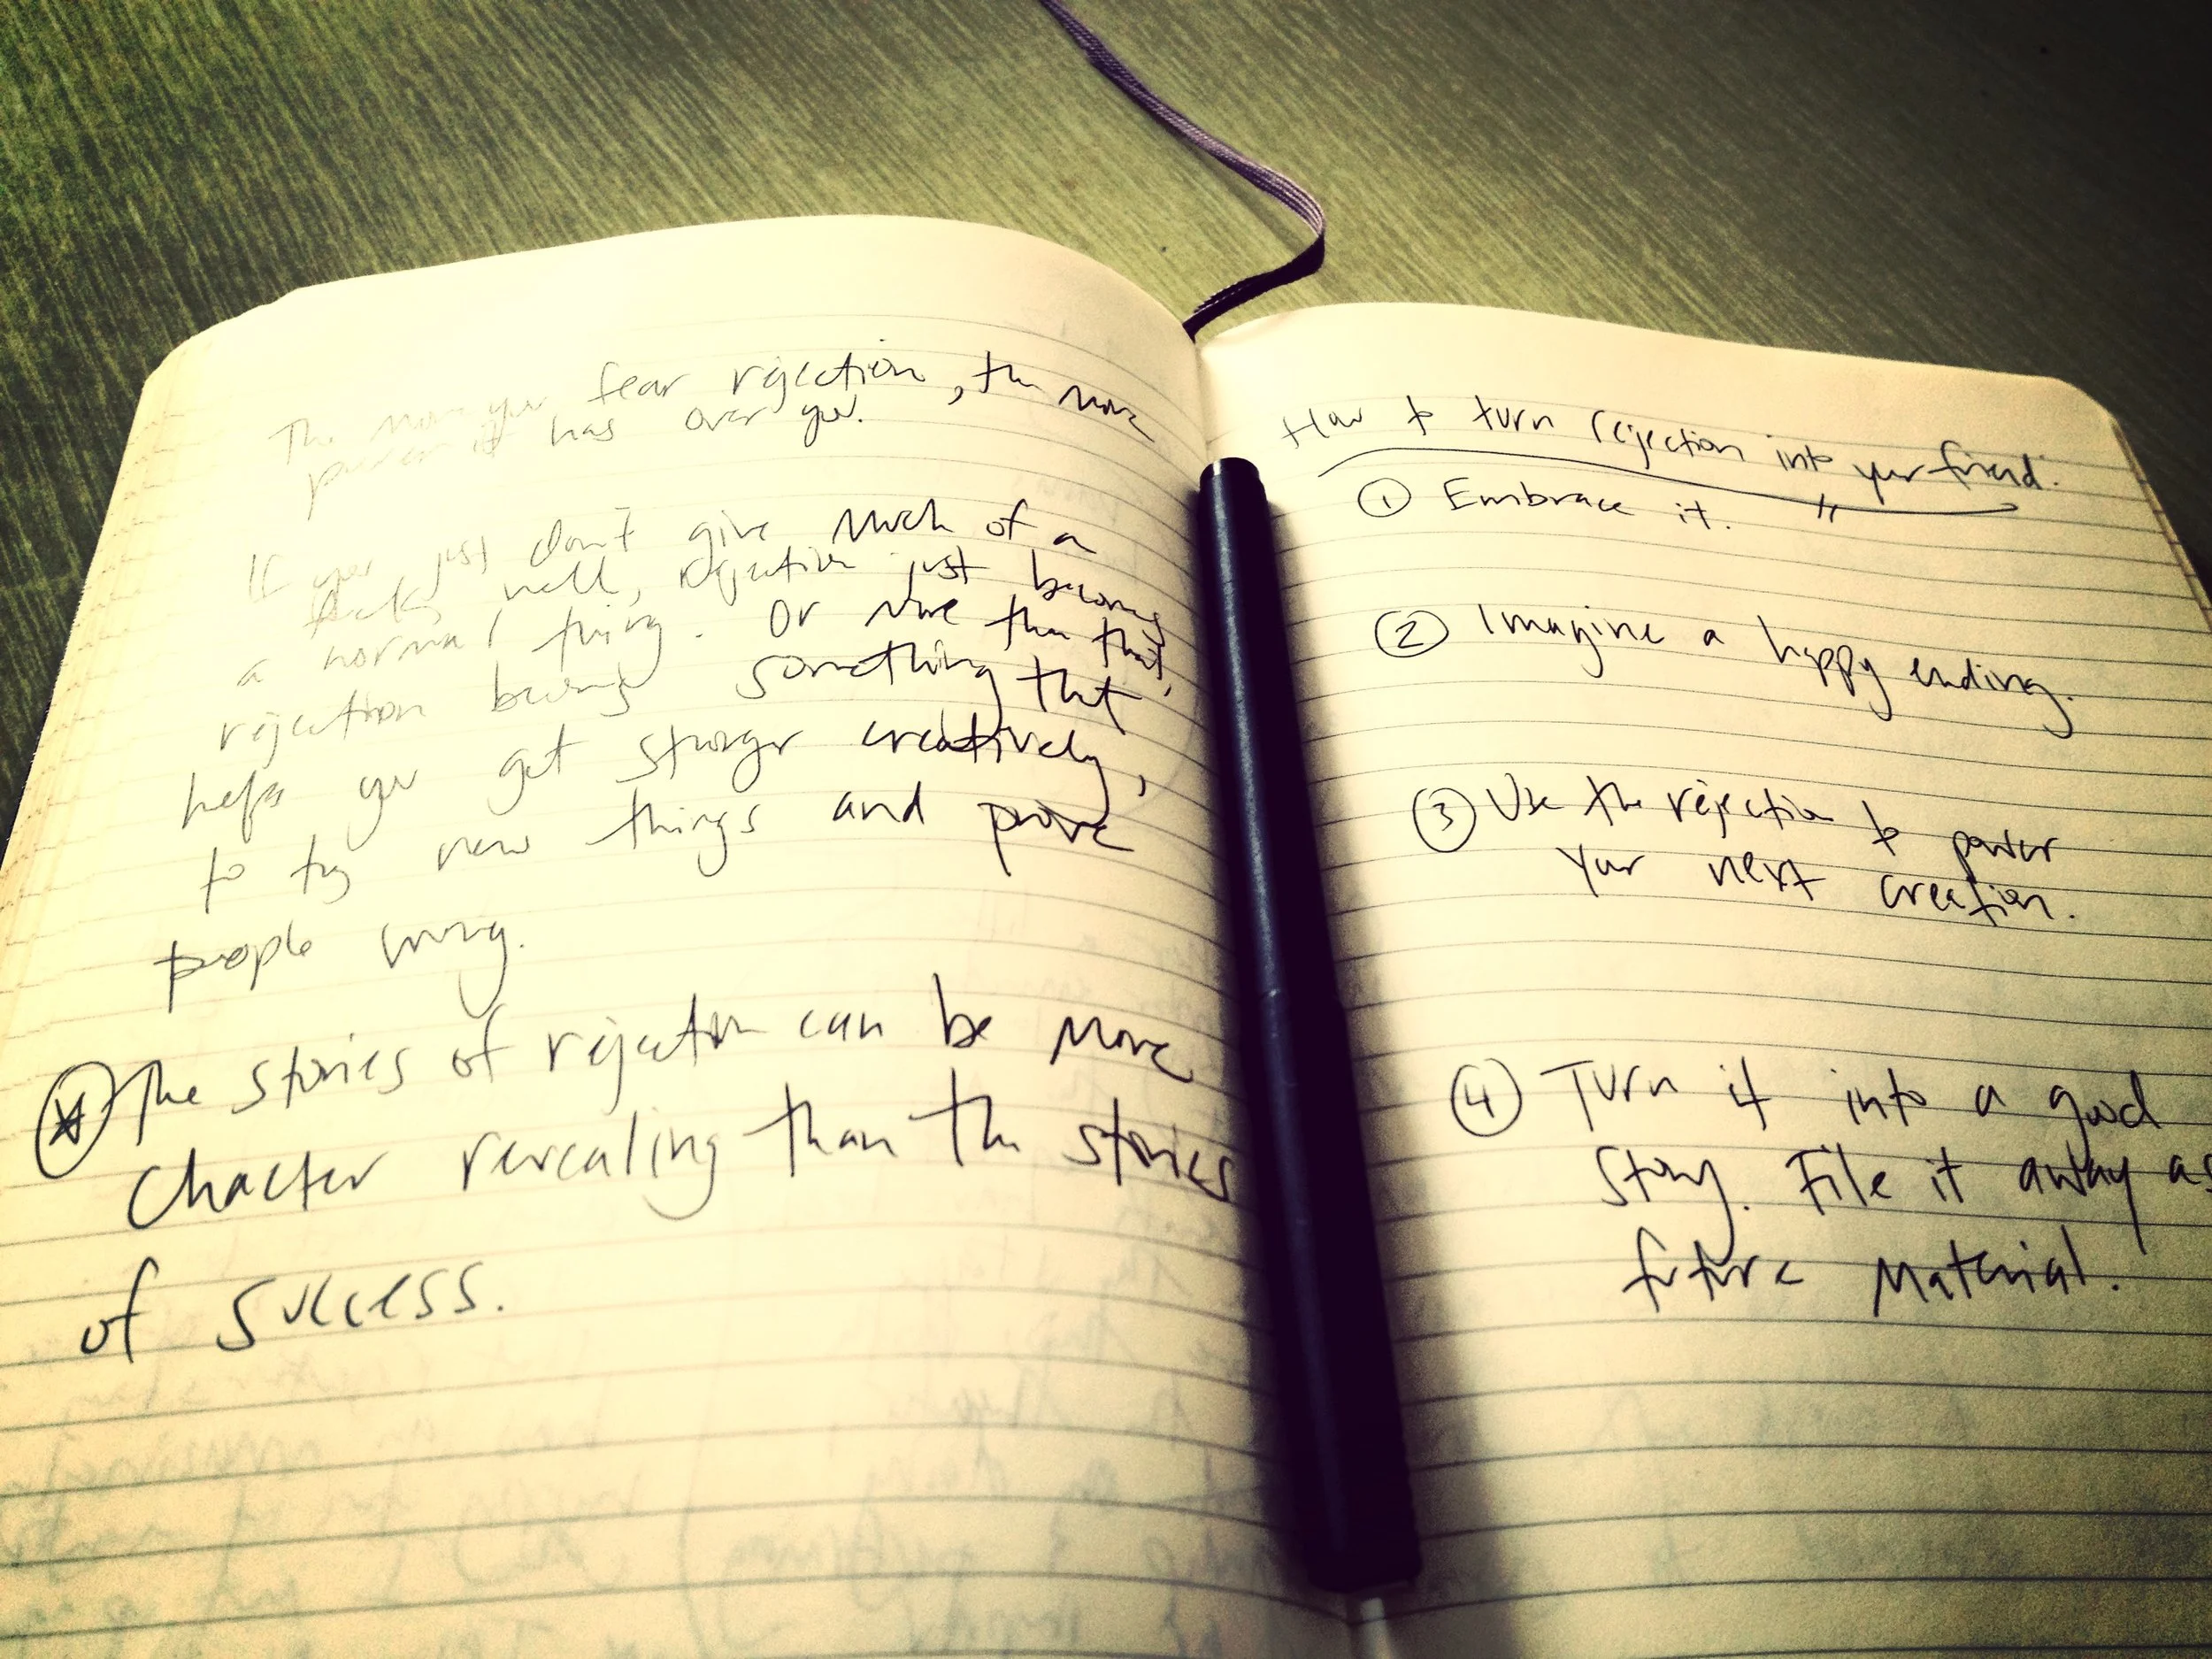 The more you fear rejection, the more
power it has over you.
If you just don't give much of a
fuck, well, rejection just becomes
a normal thing. Or more than that,
rejection becomes something that
helps you get stronger creatively,
to try new things and prove
people wrong.
The stories of rejection can be more
chacter revealing than the stories
of success.
How to turn rejection into your friend.
1 Embrace it.
2 Imagine a happy ending.
3 Use the rejection to power
your next creation.
4 Turn it into a good
story. File it away as
future material.